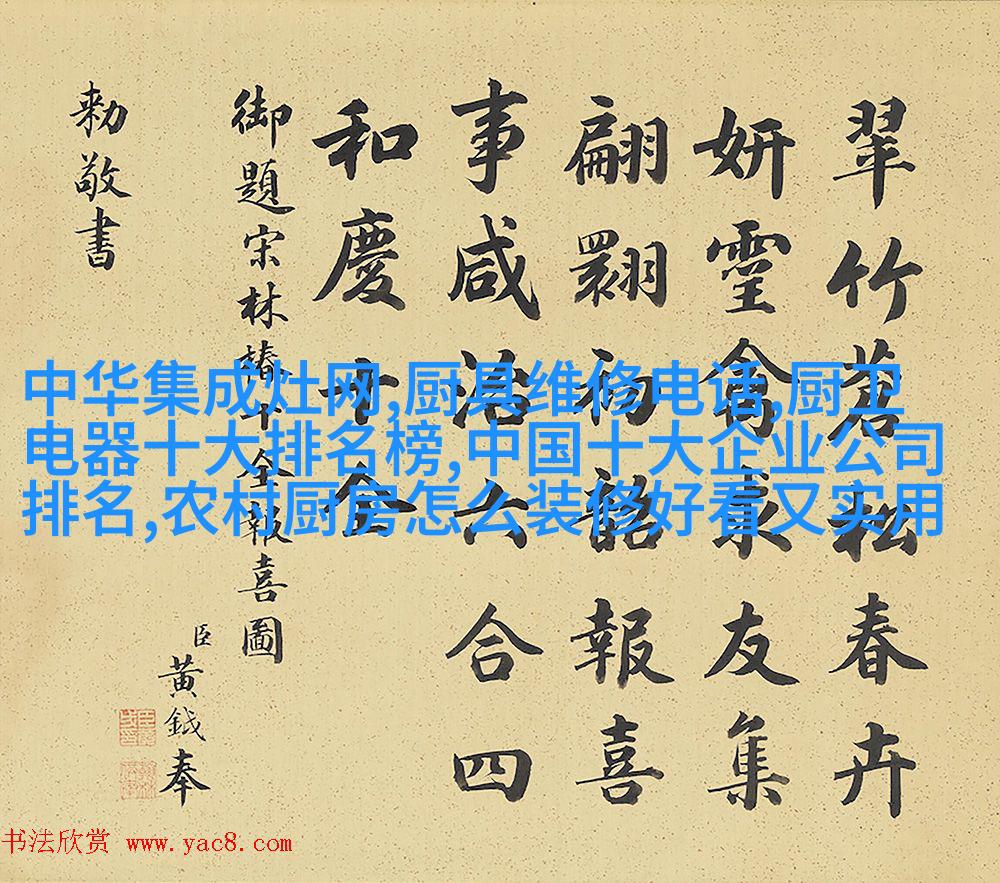 翠竹蒼松春卉
妍靈禽來友集
翩翾初韶報喜
事咸洽六合四
和慶十全
御題宋林椿十全報喜圖
臣黃鉞奉
勑敬書
中华集成灶网,厨具维修电话,厨卫
电器十大排名榜,中国十大企业公司
排名,农村厨房怎么装修好看又实用
书法欣赏 www.yac8.com